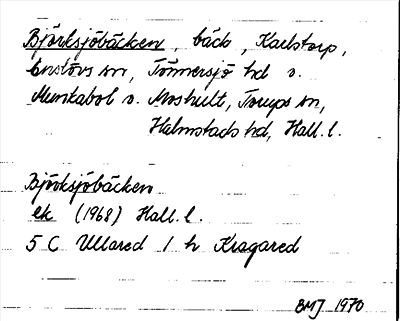 Björksjöbäcken, bäck, Karlstorp,
Enslövs sn, Tönnersjö hd o.
Munkabol o. Moshult, Torups sn,
Halmstads hd, Hall. l.
Björksjöbäcken
ek (1968) Hall. l.
5 C Ullared 1 h Kragared
BMJ 1970